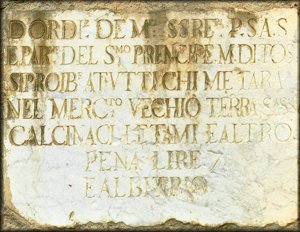 D ORD.ᴱ DE M.ᵀ SS.RE.ᴵ P.S.A.S
E PAR.ᵀ DEL S.ᴹᴼ PRENCIPE M. DI TOS
SI PROIB.ᴱ A TVTTI CHI METARA
NEL MERC.ᵀᴼ VECHIO TERRA SASS
CALCINACI LETAMI E ALTRO
PENA LIRE 7
E ALBITRIO